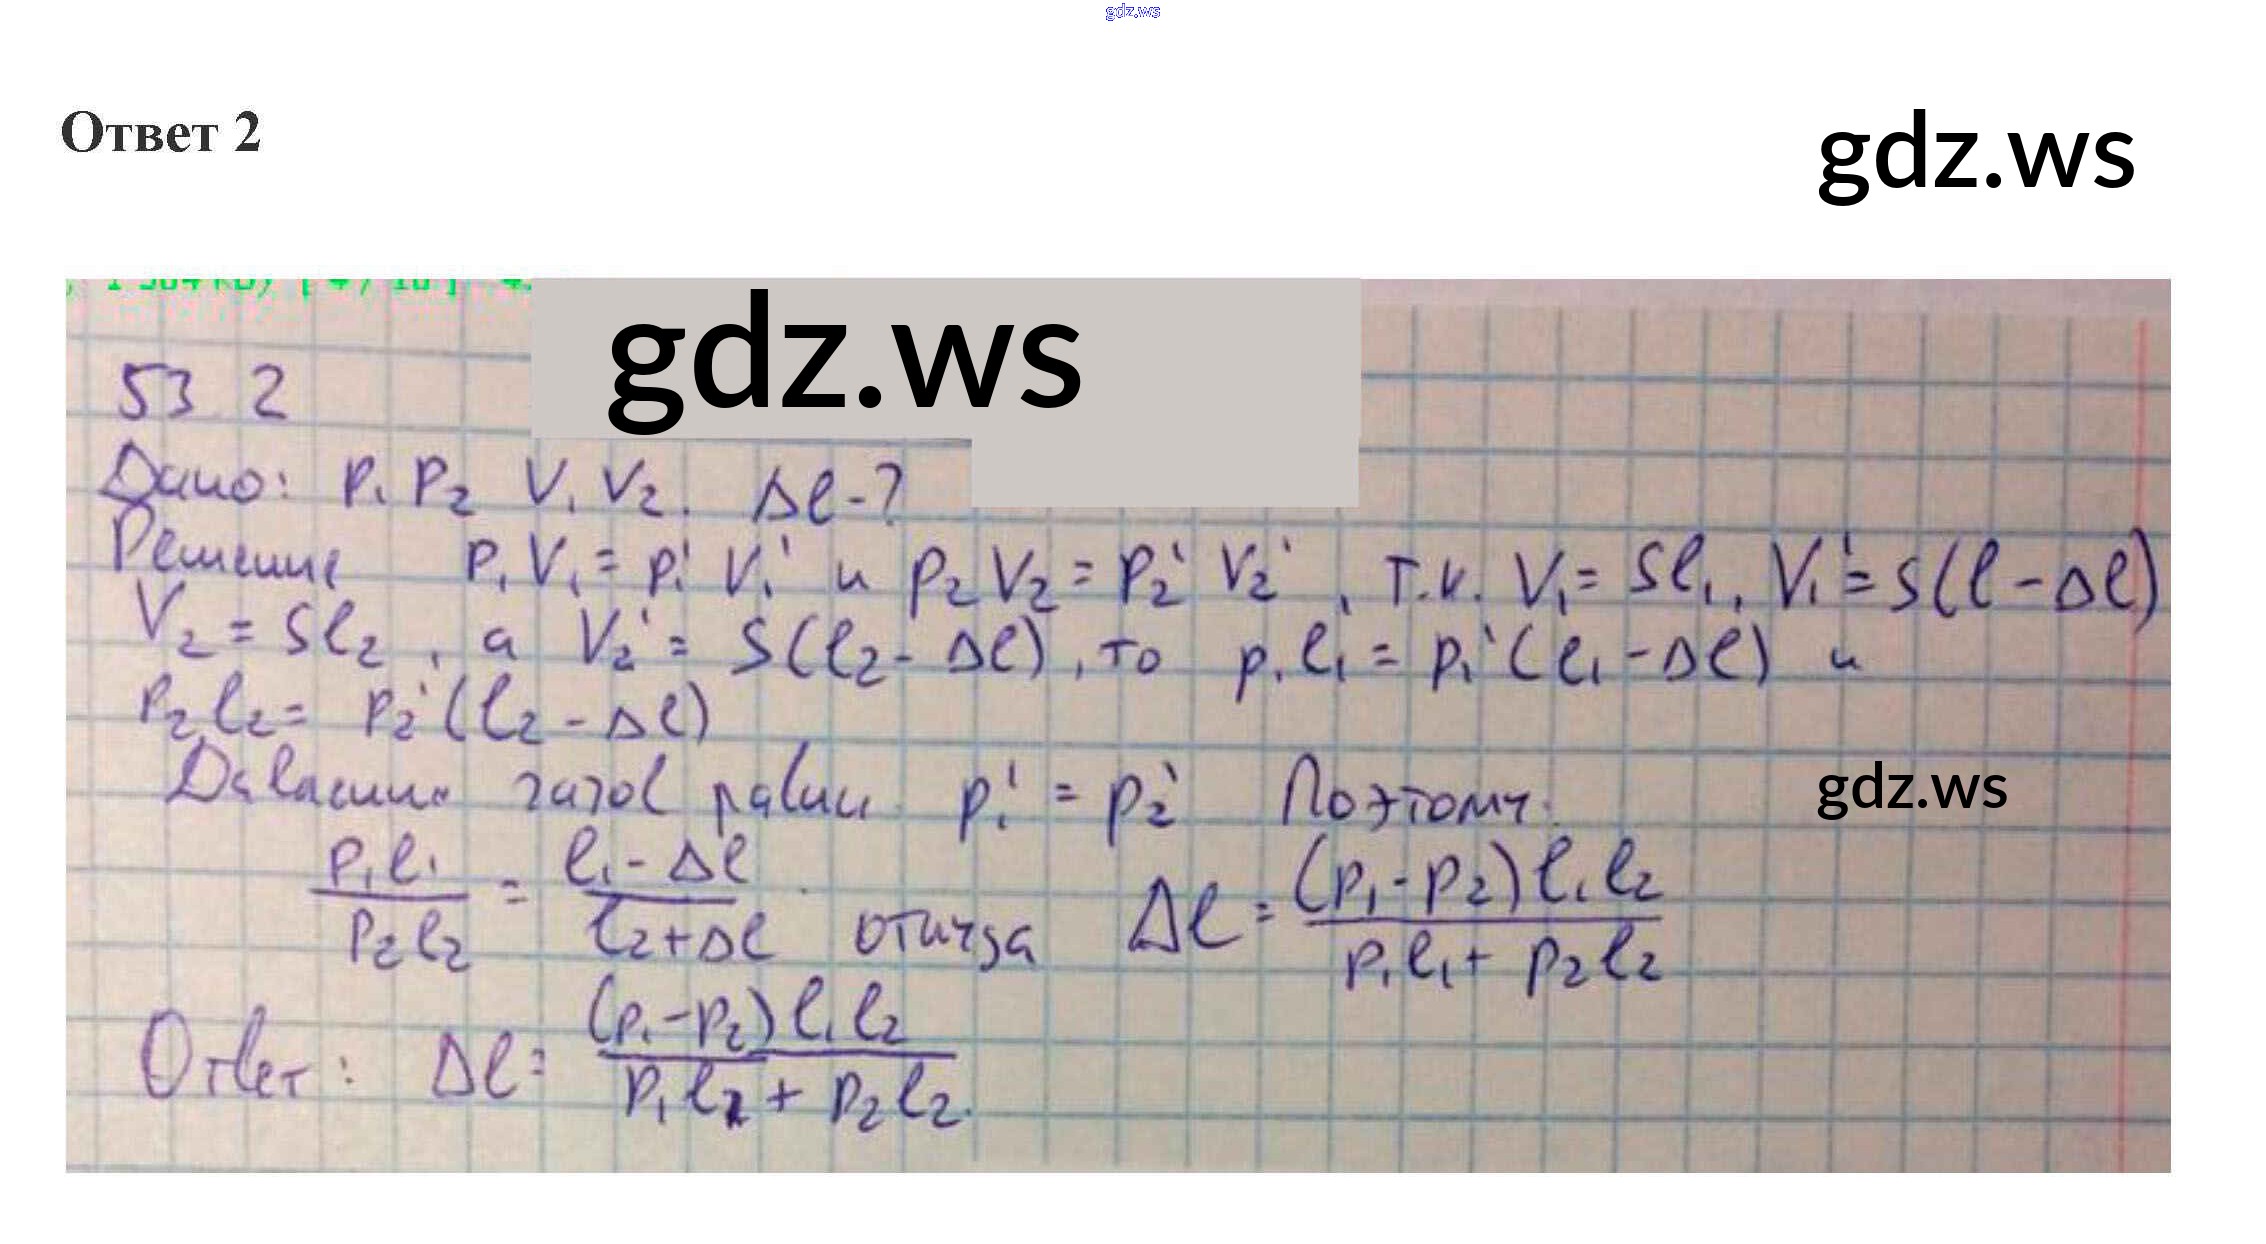 gdz.ws
Ответ 2
gdz.ws
gdz.ws
53 2
Дано: P₁ P₂ V₁ V₂. Δl-?
Решение P₁V₁ = P₁' V₁' и P₂V₂ = P₂' V₂', т.к. V₁ = Sl₁, V₁' = S(l-Δl)
V₂ = Sl₂, а V₂' = S(l₂-Δl), то p₁l₁ = p₁'(l₁-Δl) и
P₂l₂ = P₂'(l₂-Δl)
Давление газов равны p₁' = p₂' Поэтому:
gdz.ws
P₁l₁/P₂l₂ = l₁-Δl/l₂+Δl. откуда Δl = (p₁-p₂)l₁l₂/p₁l₁+p₂l₂
Ответ: Δl = (p₁-p₂)l₁l₂/p₁l₁+p₂l₂.